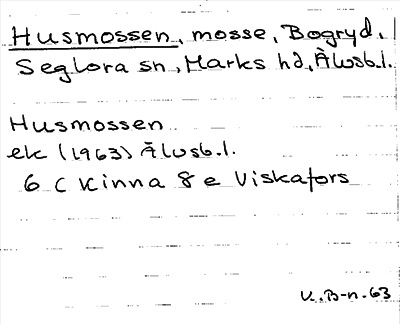 Husmossen, mosse, Bogryd,
Seglora sn, Marks hd, Älvsb.l.
Husmossen
ek (1963) Älvsb.l.
6 C Kinna 8 e Viskafors
U.B-n.63